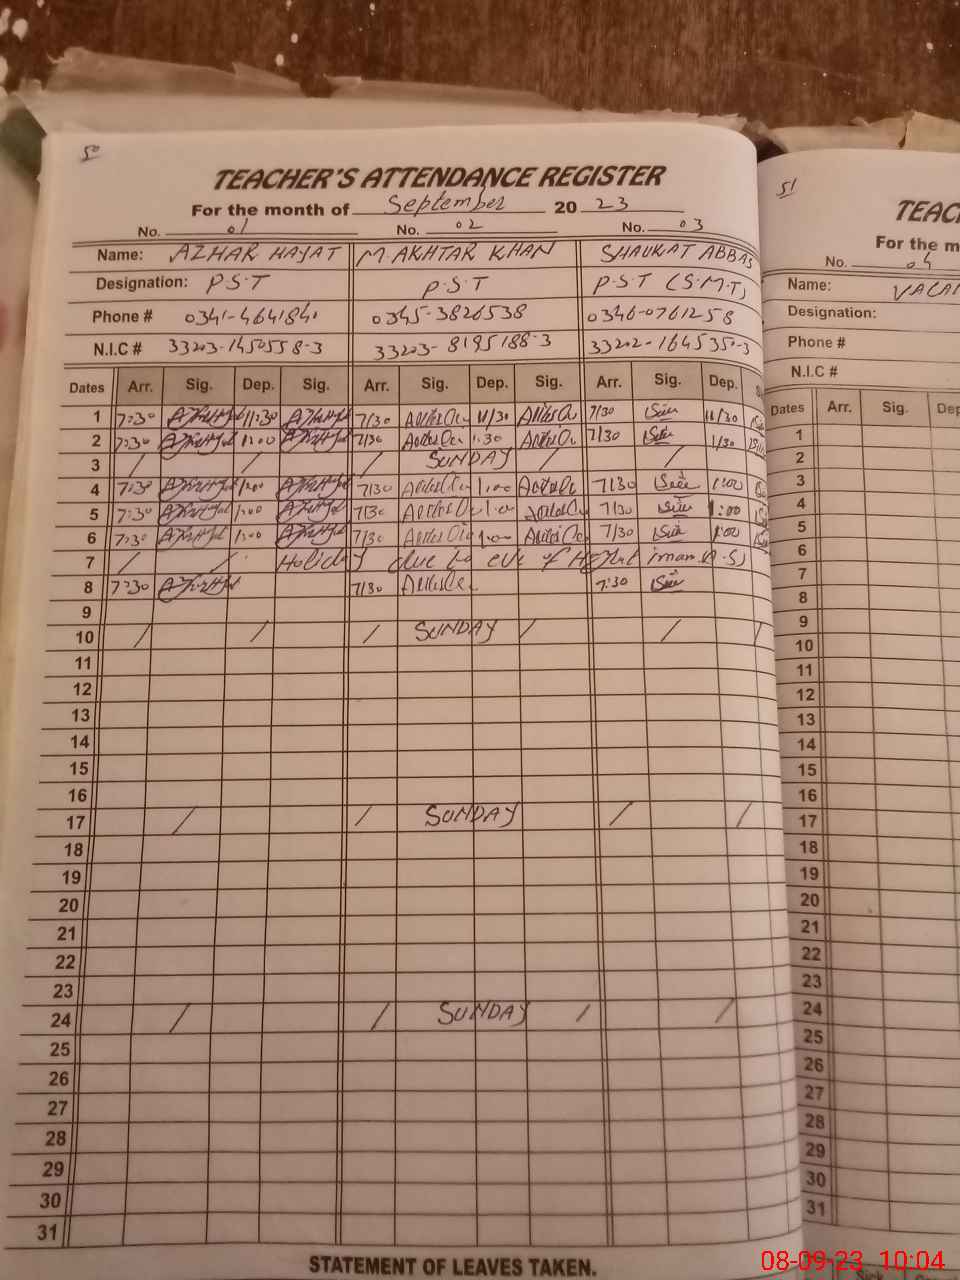 50
TEACHER'S ATTENDANCE REGISTER
For the month of September 20 23
No. 01 No. 02 No. 03
Name: AZHAR HAYAT M. AKHTAR KHAN SHAUKAT ABBAS
Designation: P.S.T P.S.T P.S.T (S.M.T)
Phone # 0341-4641841 0345-3826538 0346-0761258
N.I.C # 33203-1450558-3 33203-8195188-3 33202-164535-3
Dates Arr. Sig. Dep. Sig. Arr. Sig. Dep. Sig. Arr. Sig. Dep.
1 7:30 11:30 7/30 11/30 7/30 11/30
2 7:30 1:00 7/30 1:30 7/30 1/30
3 / / / SUNDAY / /
4 7:30 1:00 7/30 1:00 7/30 1:00
5 7:30 1:00 7/30 1:00 7/30 1:00
6 7:30 1:00 7/30 1:00 7/30 1:00
7 / / Holiday due to eve of Imam (A.S)
8 7:30 7/30 7:30
9
10 / / / SUNDAY / / /
11
12
13
14
15
16
17 / / SUNDAY / /
18
19
20
21
22
23
24 / / SUNDAY / /
25
26
27
28
29
30
31
STATEMENT OF LEAVES TAKEN.
51
TEAC
For the m
No. 04
Name:
Designation:
Phone #
N.I.C #
Dates Arr. Sig. Dep
1
2
3
4
5
6
7
8
9
10
11
12
13
14
15
16
17
18
19
20
21
22
23
24
25
26
27
28
29
30
31
08-09-23 10:04